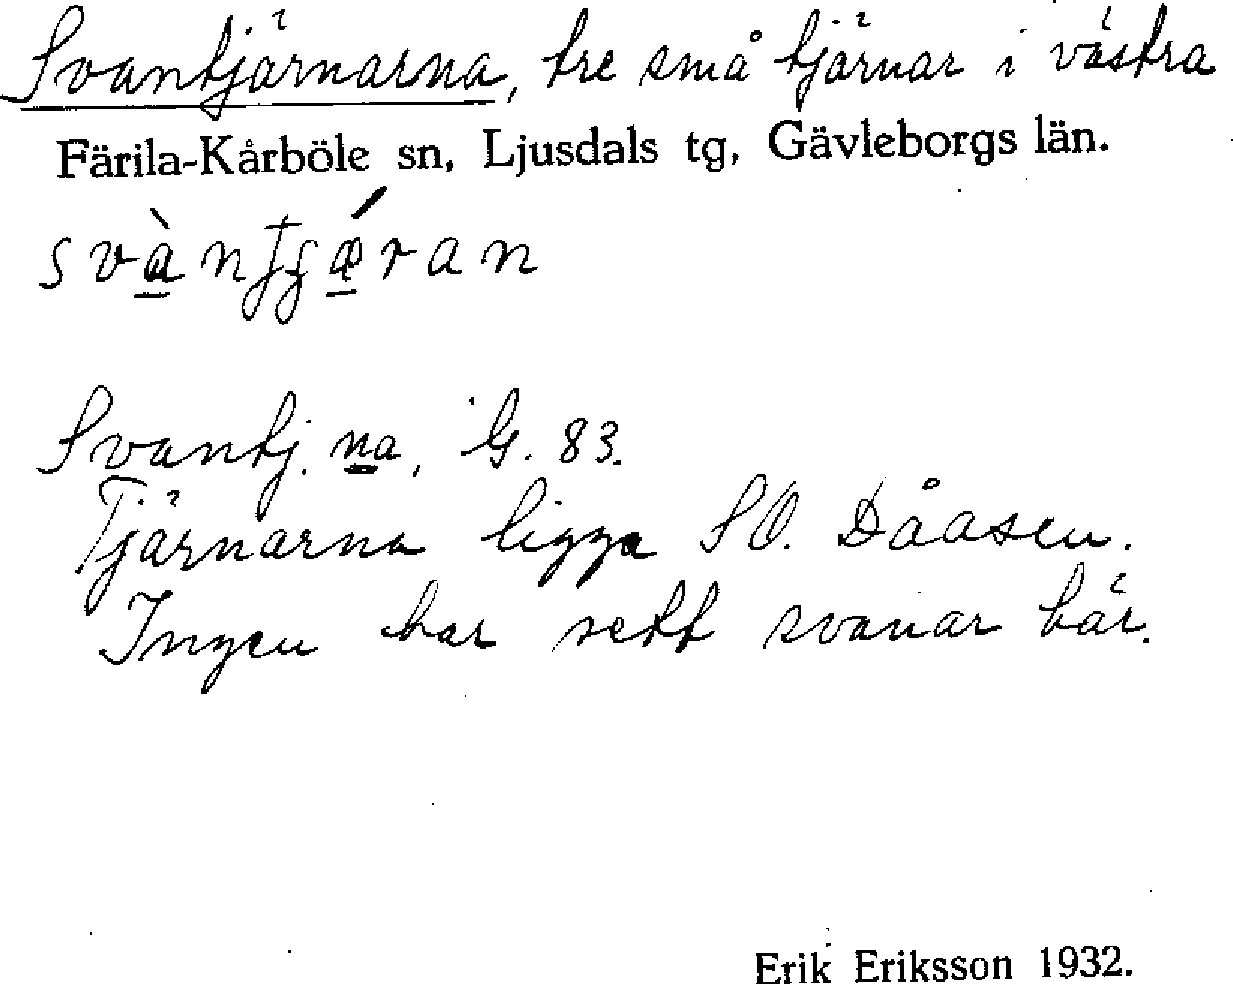 Svantjärnarna, tre små tjärnar i västra
Färila-Kårböle sn, Ljusdals tg, Gävleborgs län.
Svantj.na, G. 83.
Tjärnarna ligga SO. Dåasen.
Ingen har sett svanar här.
Erik Eriksson 1932.